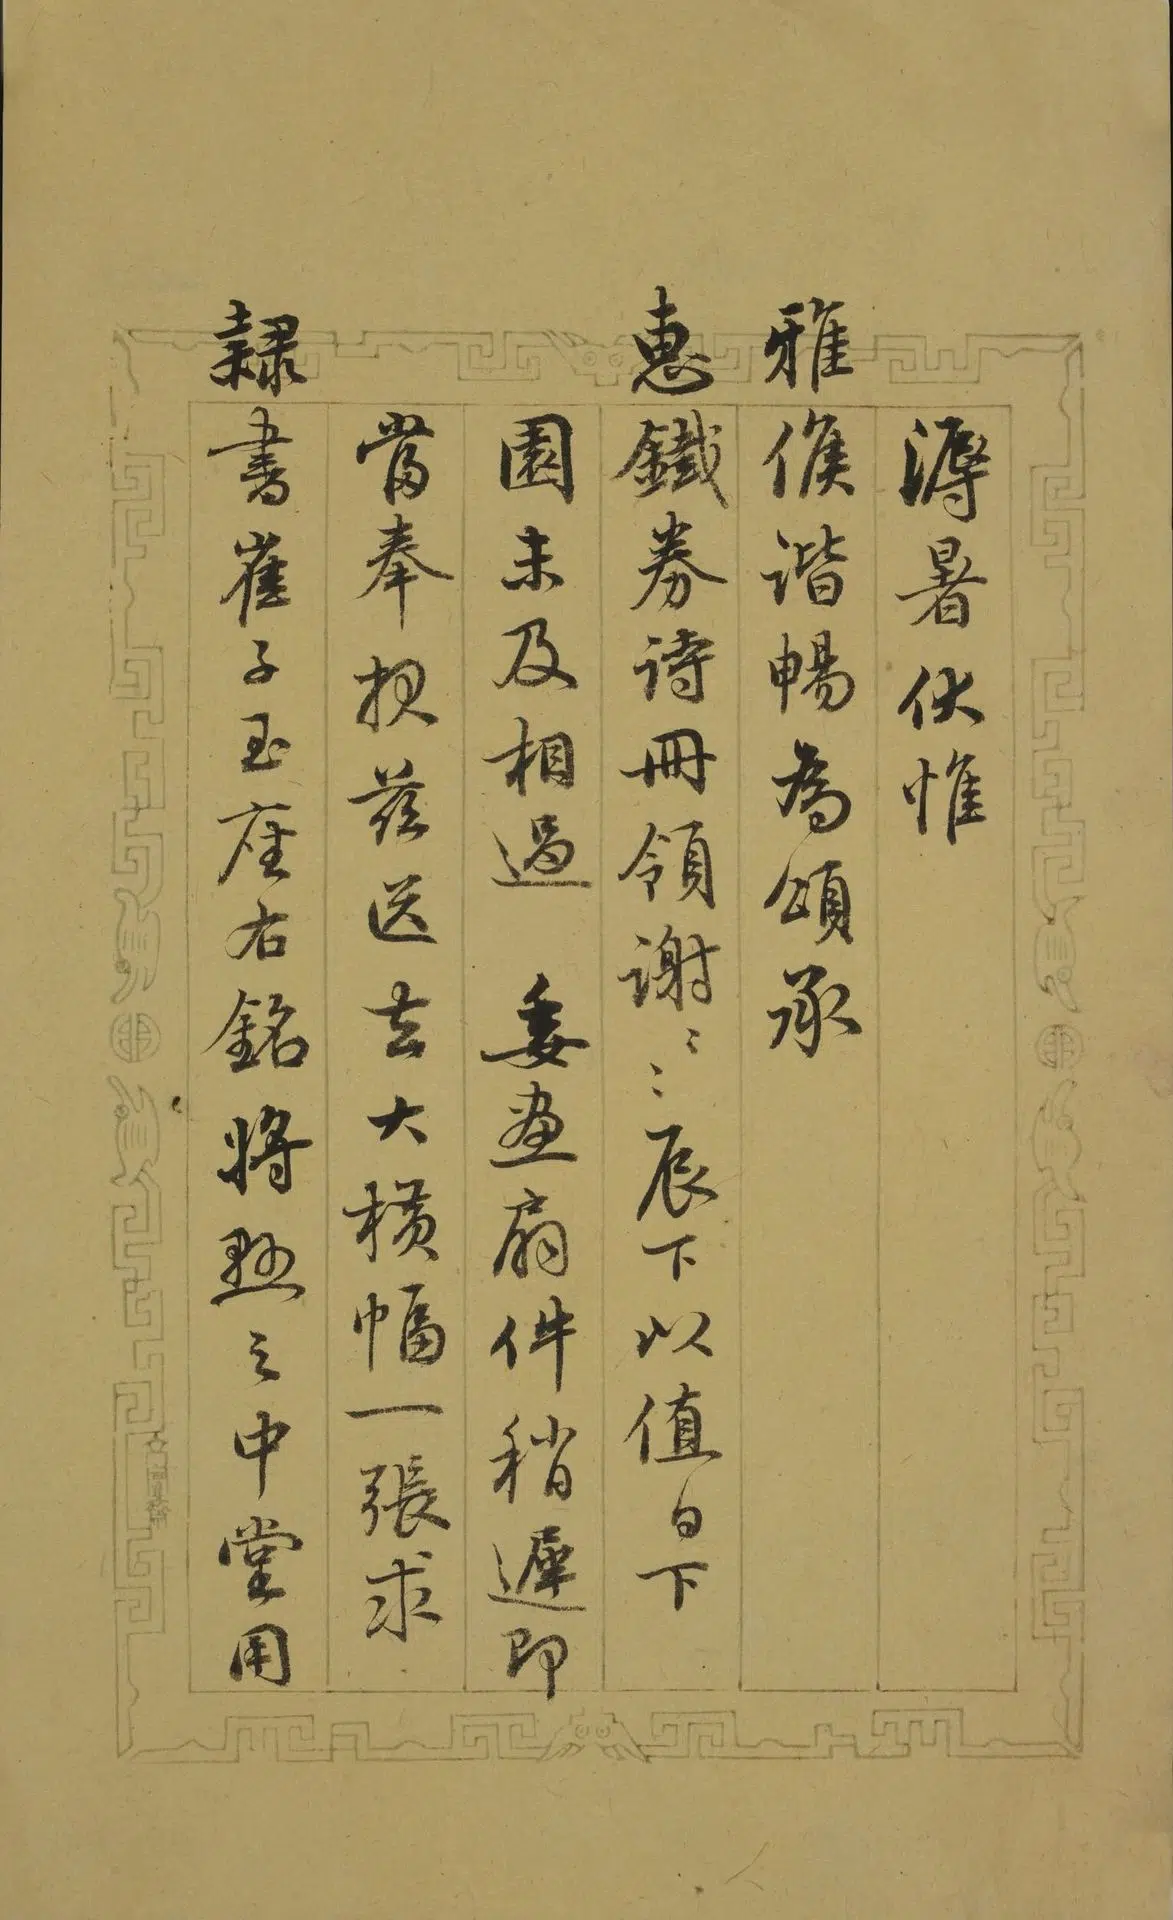 溽暑伏惟
雅候諧暢為頌承
惠鐵券詩冊領謝〻〻辰下以值日下
園未及相過 委畫扇件稍遲即
當奉 茲送去大橫幅一張求
隸書崔子玉座右銘將懸之中堂用